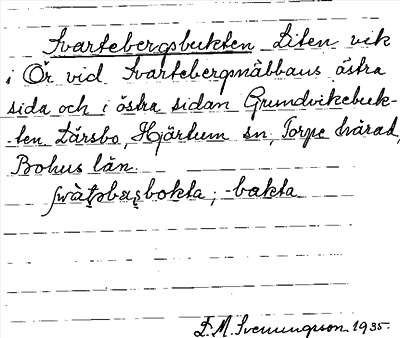 Svartebergsbukten Liten vik
i Ör vid Svartebergsnäbbans östra
sida och i östra sidan Grundvikebuk-
-ten Lärsbo, Hjärtum sn, Torpe härad,
Bohus län.
bokta; -bakta
S.M. Svenungsson 1935.